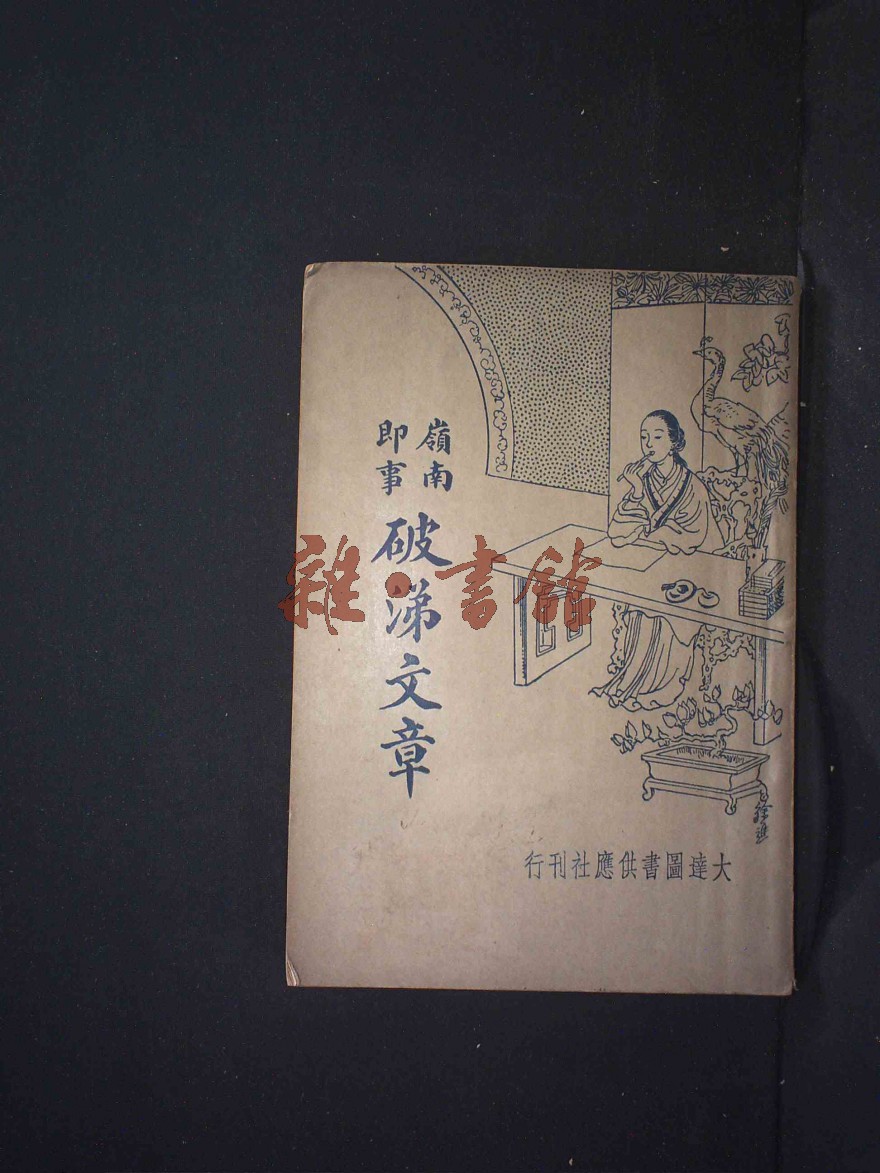 嶺南
即事
破涕文章
大達圖書供應社刊行
雜·書館